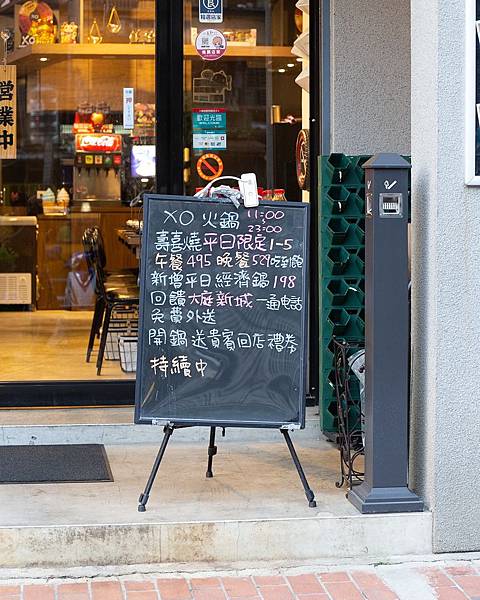 XO
營業中
歡迎光臨
XO 火鍋 11:00
23:00
壽喜燒平日限定1-5
午餐495晚餐529吃到飽
新增平日經濟鍋198
回饋大庭新城一通電話
免費外送
開鍋送貴賓回店禮券
持續中